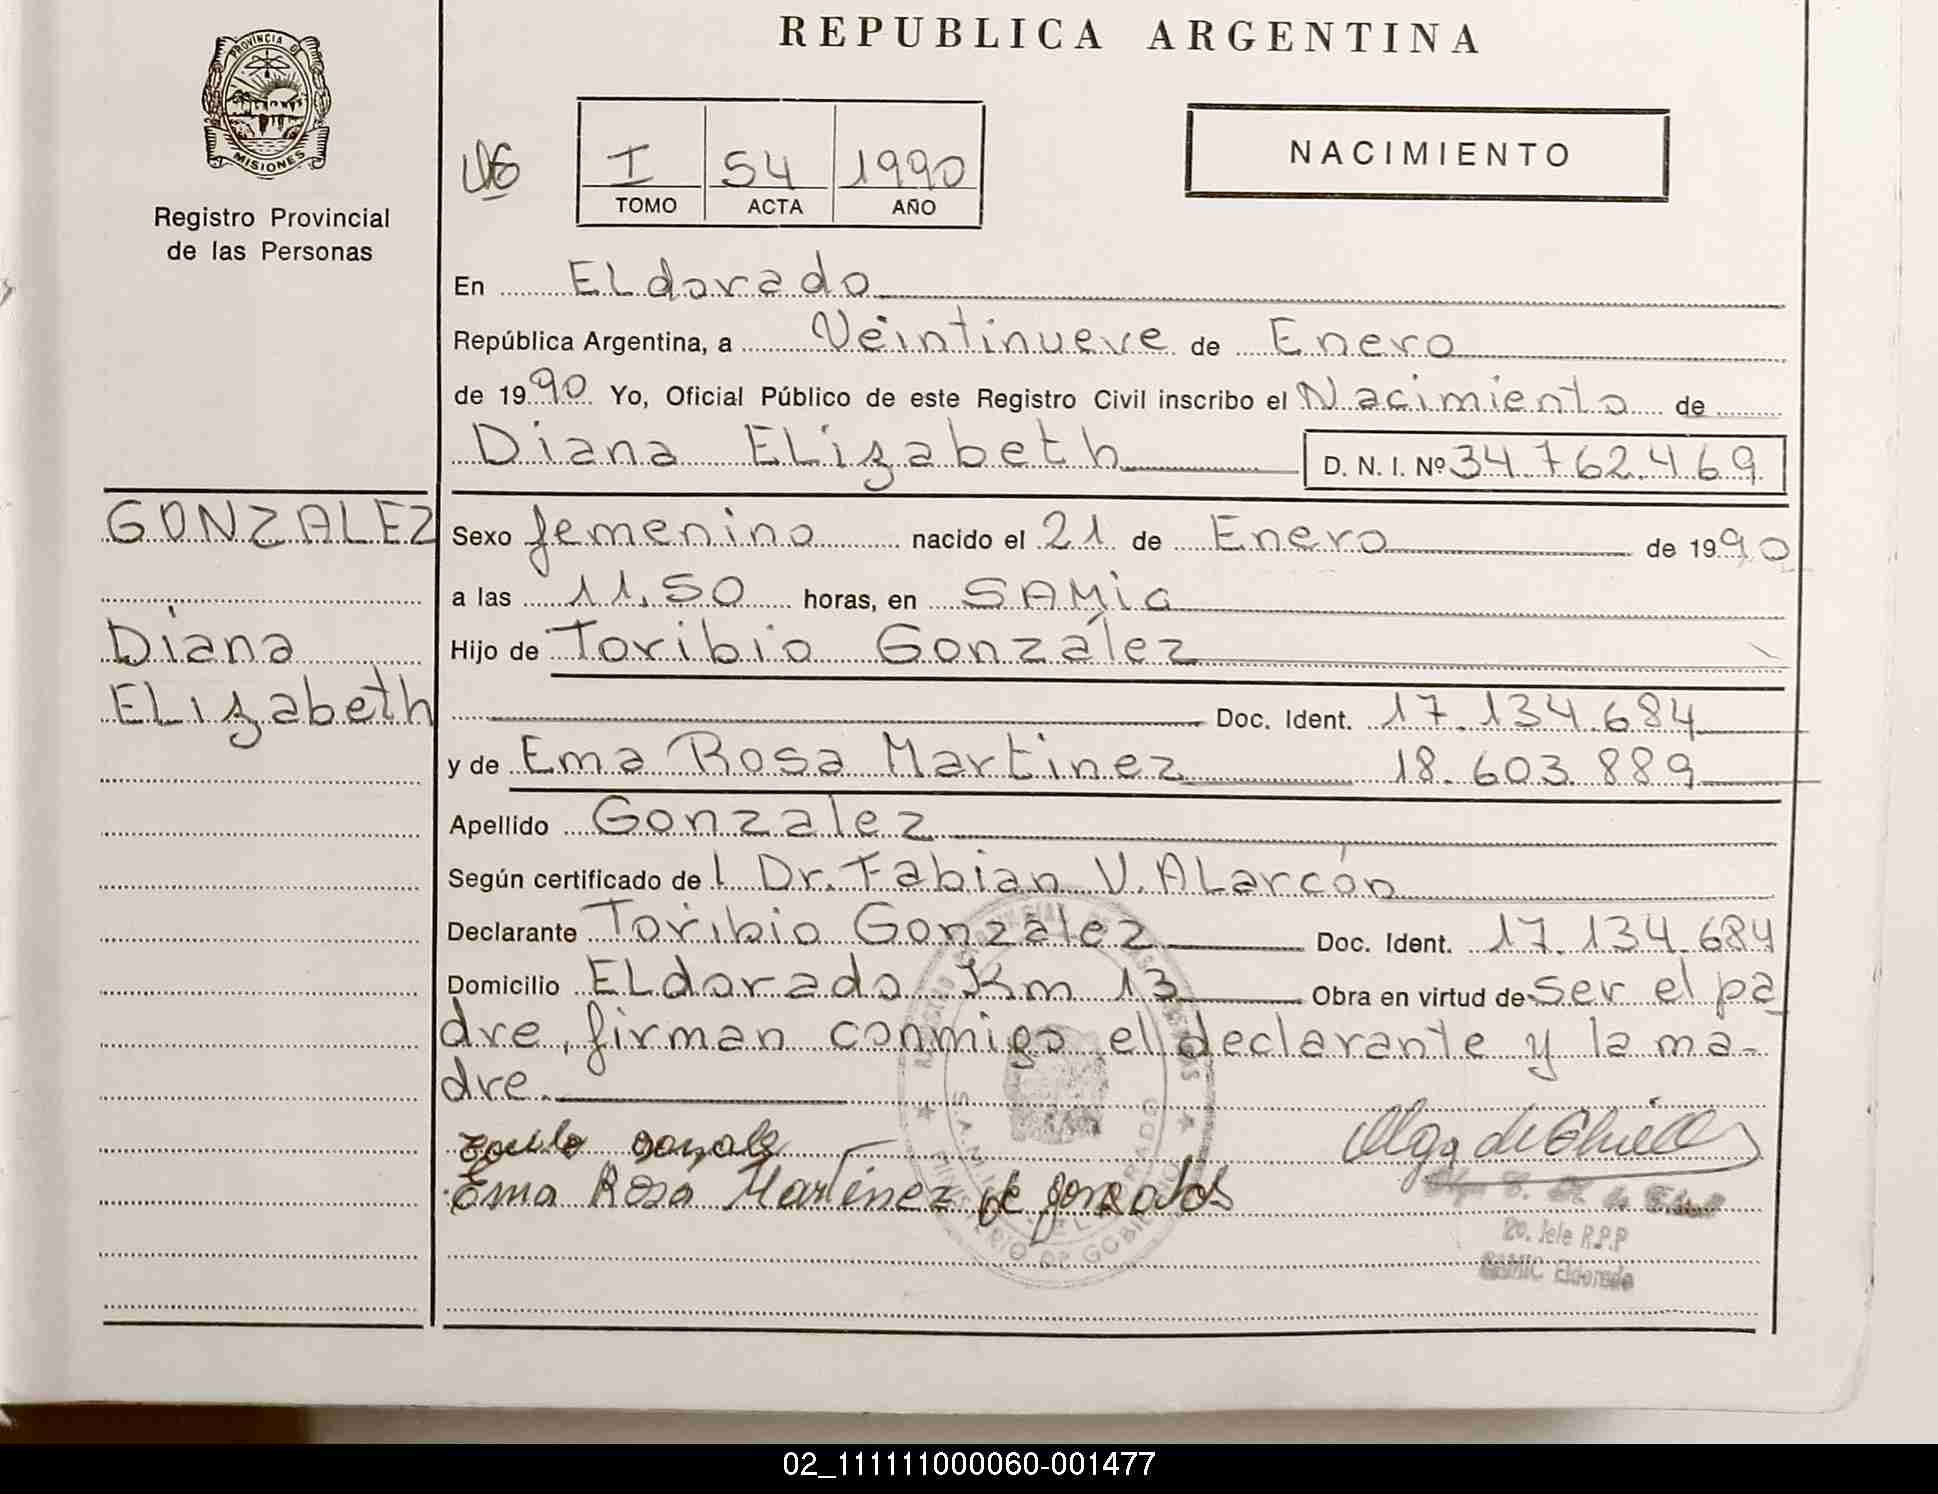 REPUBLICA ARGENTINA
PROVINCIA DE
MISIONES
Registro Provincial
de las Personas
I 54 1990
TOMO ACTA AÑO
NACIMIENTO
En ELdorado
República Argentina, a Veintinueve de Enero
de 1990 Yo, Oficial Público de este Registro Civil inscribo el Nacimiento de
Diana ELizabeth D. N. I. Nº 34.762.469
GONZALEZ
Diana
ELizabeth
Sexo femenino nacido el 21 de Enero de 1990
a las 11,50 horas, en SAMic
Hijo de Toribio González
Doc. Ident. 17.134.684
y de Ema Rosa Martinez 18.603.889
Apellido Gonzalez
Según certificado de l Dr. Fabian V. ALarcón
Declarante Toribio Gonzalez Doc. Ident. 17.134.684
Domicilio ELdorado Km 13 Obra en virtud de ser el pa
dre, firman conmigo el declarante y la ma-
dre.
Ema Rosa Martinez de
2o. Jefe R.P.P
SAMIC Eldorado
MINISTERIO DE GOBIERNO
02_111111000060-001477